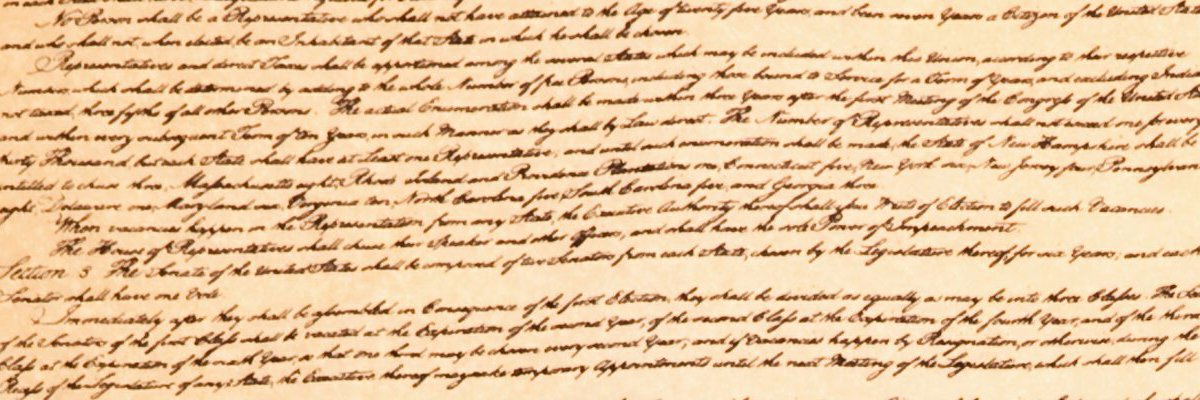 No Person shall be a Representative who shall not have attained to the Age of twenty five Years, and been seven Years a Citizen of the United States,
and who shall not, when elected, be an Inhabitant of that State in which he shall be chosen.
Representatives and direct Taxes shall be apportioned among the several States which may be included within this Union, according to their respective
Numbers, which shall be determined by adding to the whole Number of free Persons, including those bound to Service for a Term of Years, and excluding Indians
not taxed, three fifths of all other Persons. The actual Enumeration shall be made within three Years after the first Meeting of the Congress of the United States,
and within every subsequent Term of ten Years, in such Manner as they shall by Law direct. The Number of Representatives shall not exceed one for every
thirty Thousand, but each State shall have at Least one Representative; and until such enumeration shall be made, the State of New Hampshire shall be
entitled to chuse three, Massachusetts eight, Rhode Island and Providence Plantations one, Connecticut five, New York six, New Jersey four, Pennsylvania
eight, Delaware one, Maryland six, Virginia ten, North Carolina five, South Carolina five, and Georgia three.
When vacancies happen in the Representation from any State, the Executive Authority thereof shall issue Writs of Election to fill such Vacancies.
The House of Representatives shall chuse their Speaker and other Officers; and shall have the sole Power of Impeachment.
Section 3. The Senate of the United States shall be composed of two Senators from each State, chosen by the Legislature thereof, for six Years; and each
Senator shall have one Vote.
Immediately after they shall be assembled in Consequence of the first Election, they shall be divided as equally as may be into three Classes. The
of the Senators of the first Class shall be vacated at the Expiration of the second Year, of the second Class at the Expiration of the fourth Year, and of the third
Class at the Expiration of the sixth Year, so that one third may be chosen every second Year; and if Vacancies happen by Resignation, or otherwise, during the
Recess of the Legislature of any State, the Executive thereof may make temporary Appointments until the next Meeting of the Legislature, which shall then fill